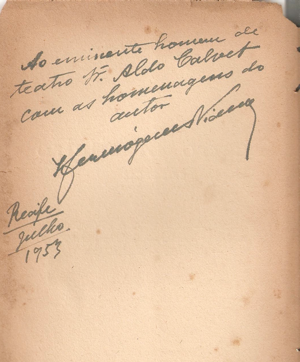 Ao eminente homem de
teatro Sr. Aldo Calvet
com as homenagens do
autor
Hermógenes Viana
Recife
Julho
1953